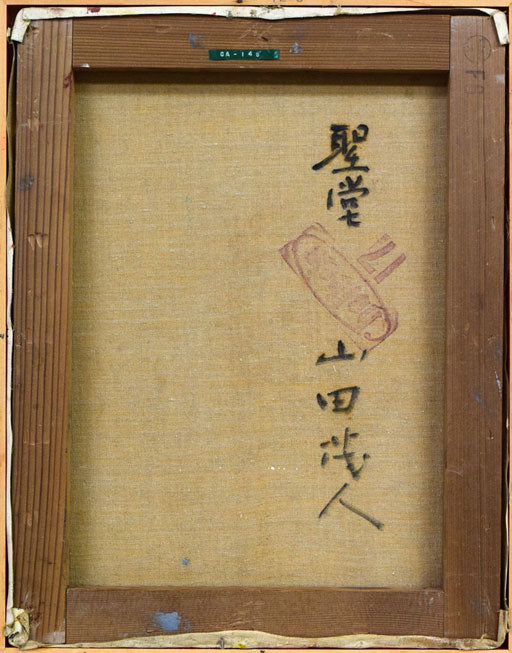 CA-140
聖堂
山田茂人